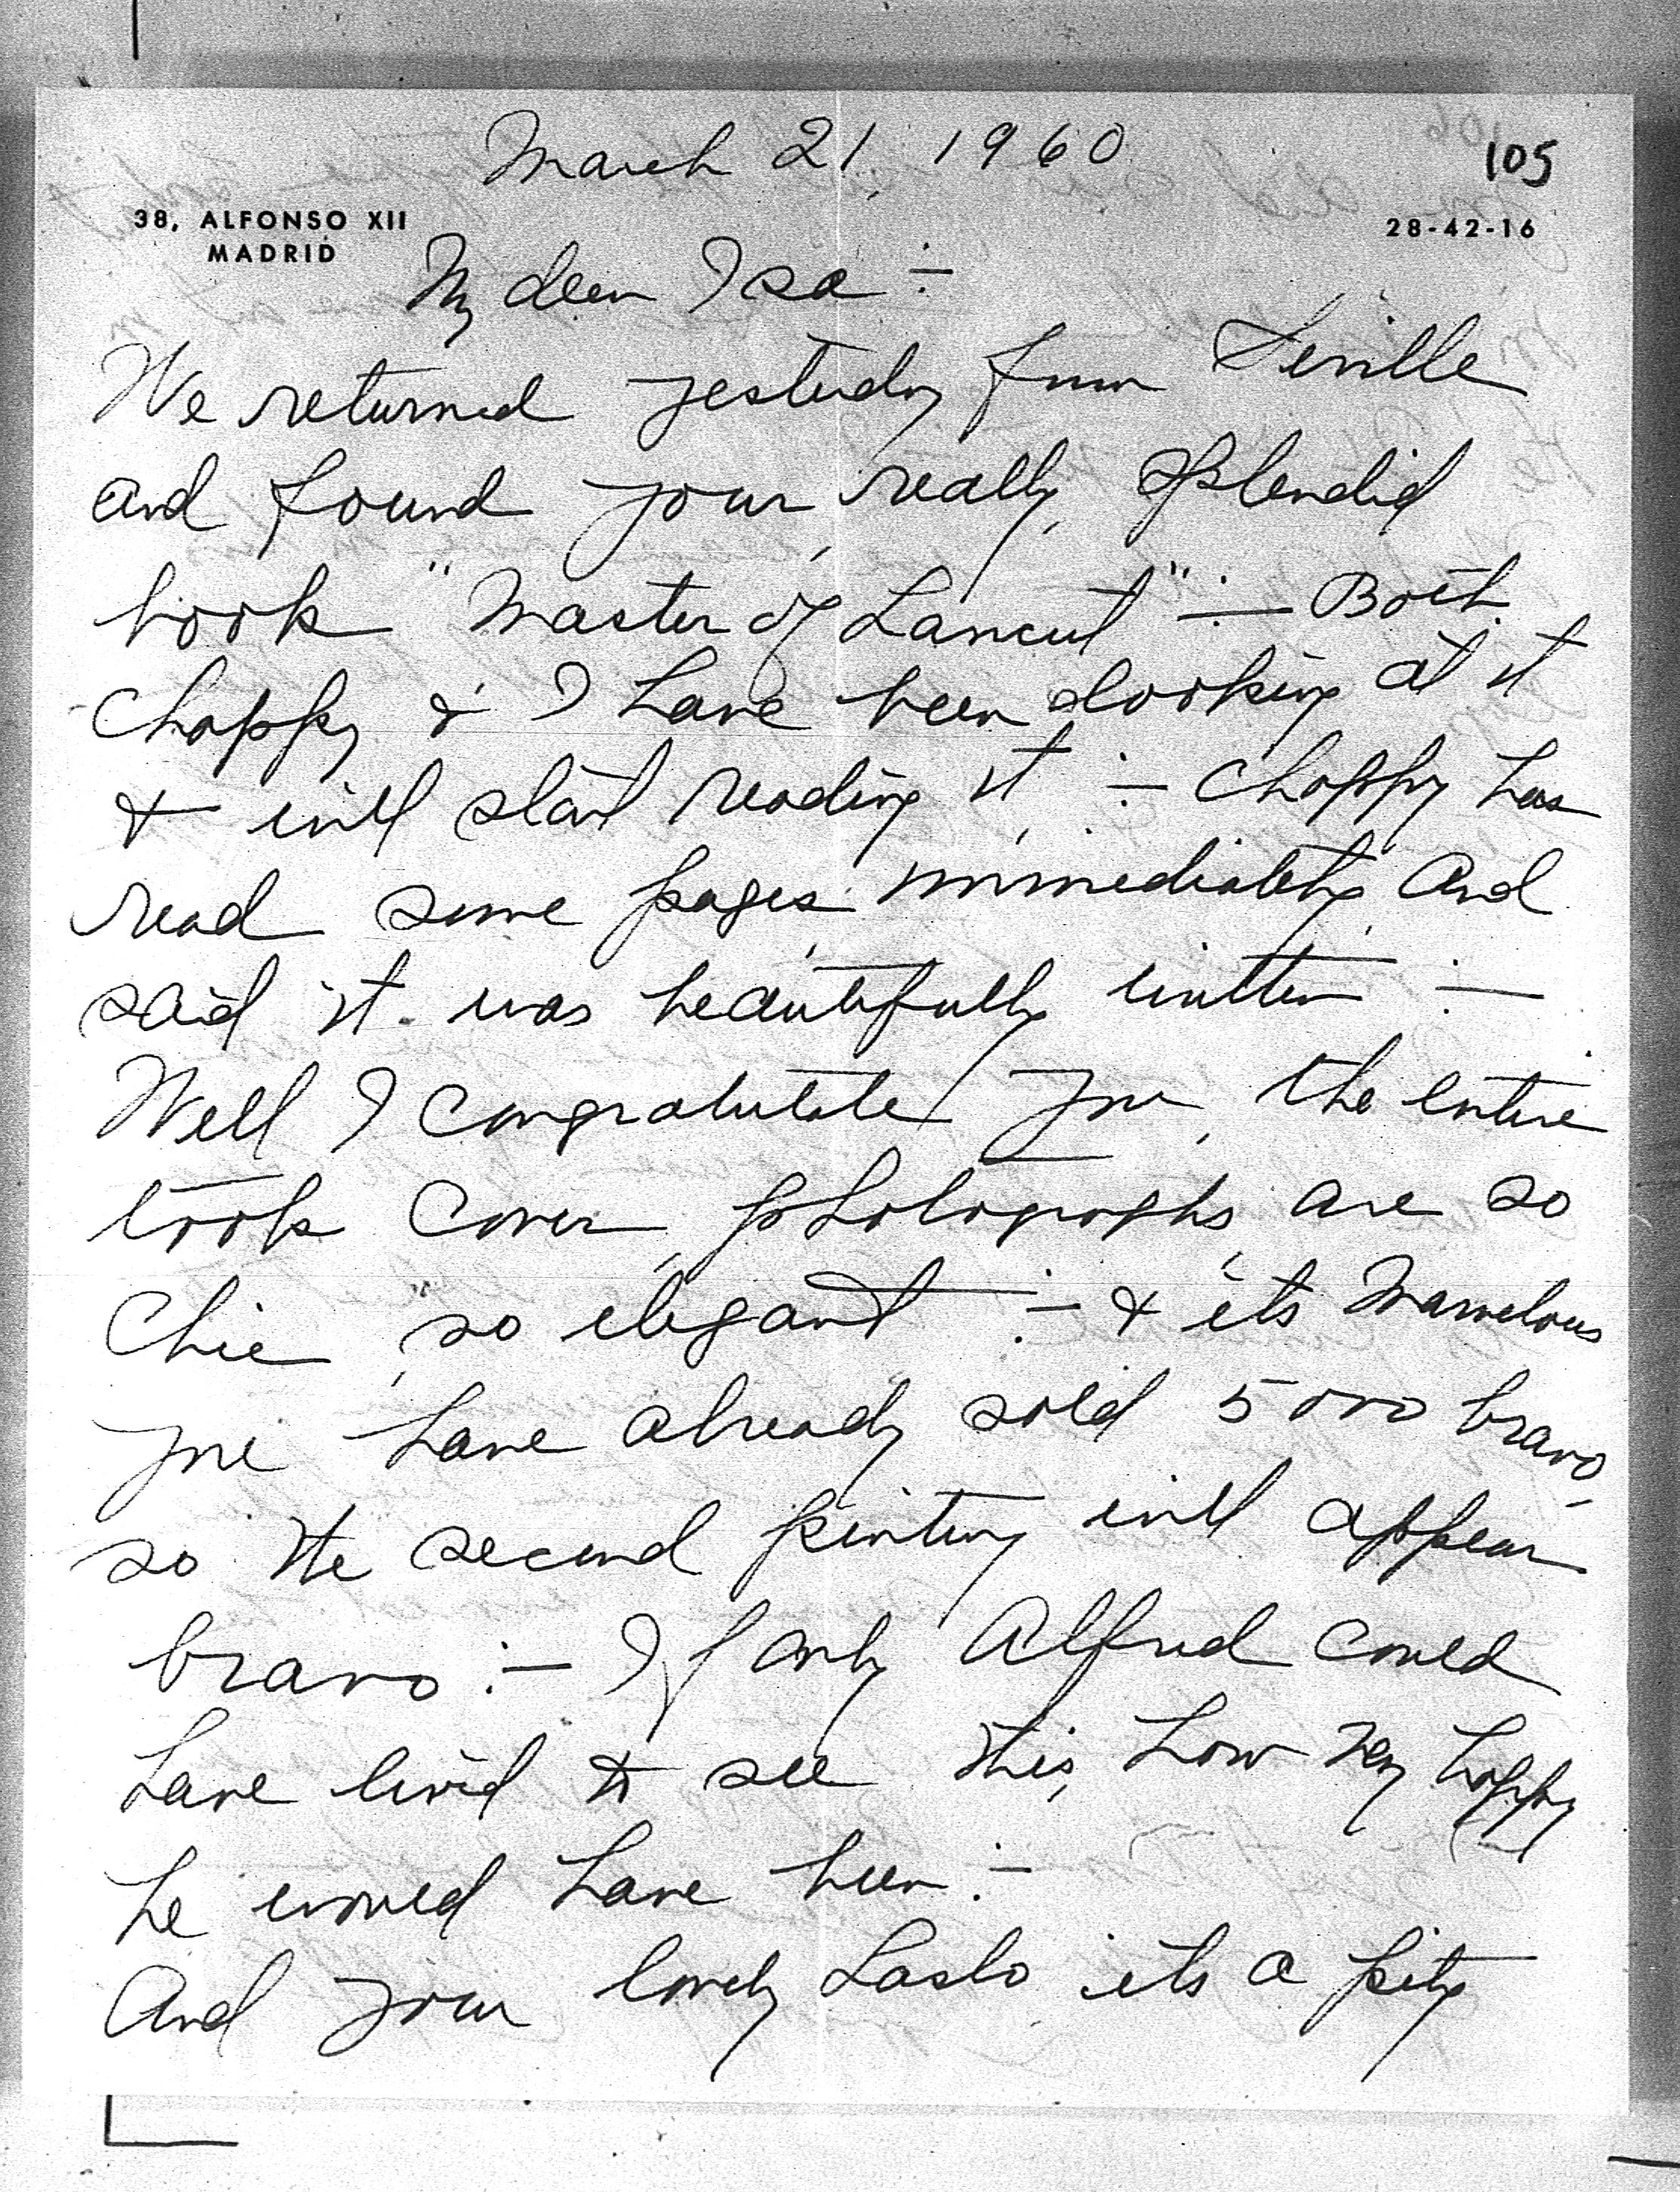 March 21, 1960
105
38, ALFONSO XII
MADRID
28-42-16
My dear Isa :-
We returned yesterday from Seville
and found your, really, splendid
book "Master of Lancut" :- Both
Chappy & I have been looking at it
& will start reading it :- Chappy has
read some pages immediately and
said it was beautifully written :-
Well I congratulate you, the entire
book cover, photographs, are so
chic, so elegant :- & its marvelous
you have already sold 5000 bravo -
so the second printing will appear
bravo :- If only Alfred could
have lived to see this, how very happy
he would have been :-
And your lovely Laslo its a pity